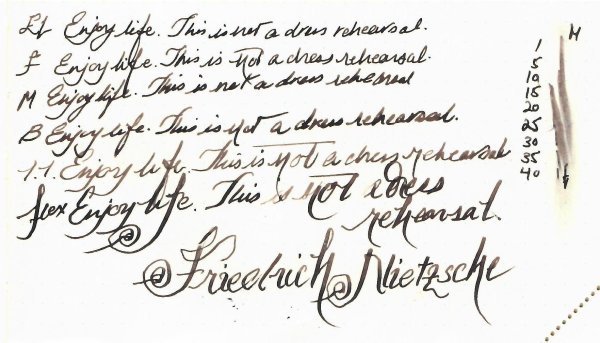 Ef Enjoy life. This is not a dress rehearsal.
F Enjoy life. This is not a dress rehearsal.
M Enjoy life. This is not a dress rehearsal
B Enjoy life. This is not a dress rehearsal.
1.1 Enjoy life. This is not a dress rehearsal
flex Enjoy life. This is not a dress
rehearsal.
Friedrich Nietzsche
M
1
5
10
15
20
25
30
35
40